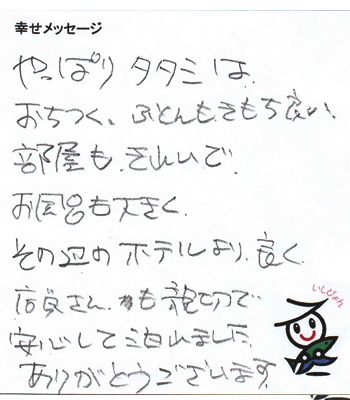 幸せメッセージ
やっぱりタタミは、
おちつく、ふとんもきもち良い、
部屋も、きれいで、
お風呂も大きく、
その辺のホテルより、良く、
店員さんも親切で
安心して泊れました。
ありがとうございます。
いしぴょん